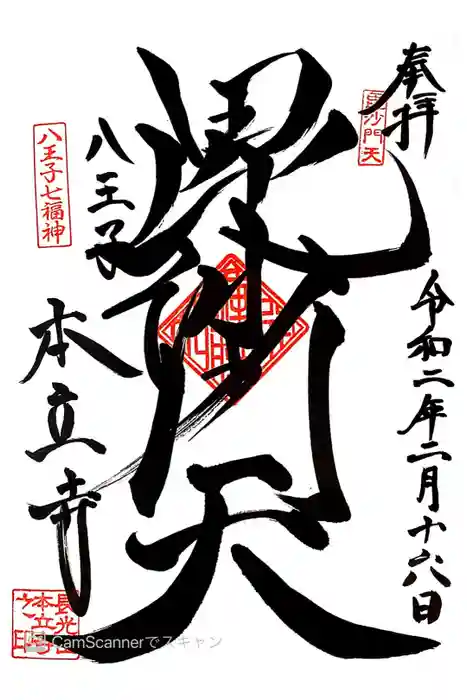 奉拝
毘沙門天
令和二年二月十六日
毘沙門天
八王子
本立寺
八王子七福神
CamScannerでスキャン